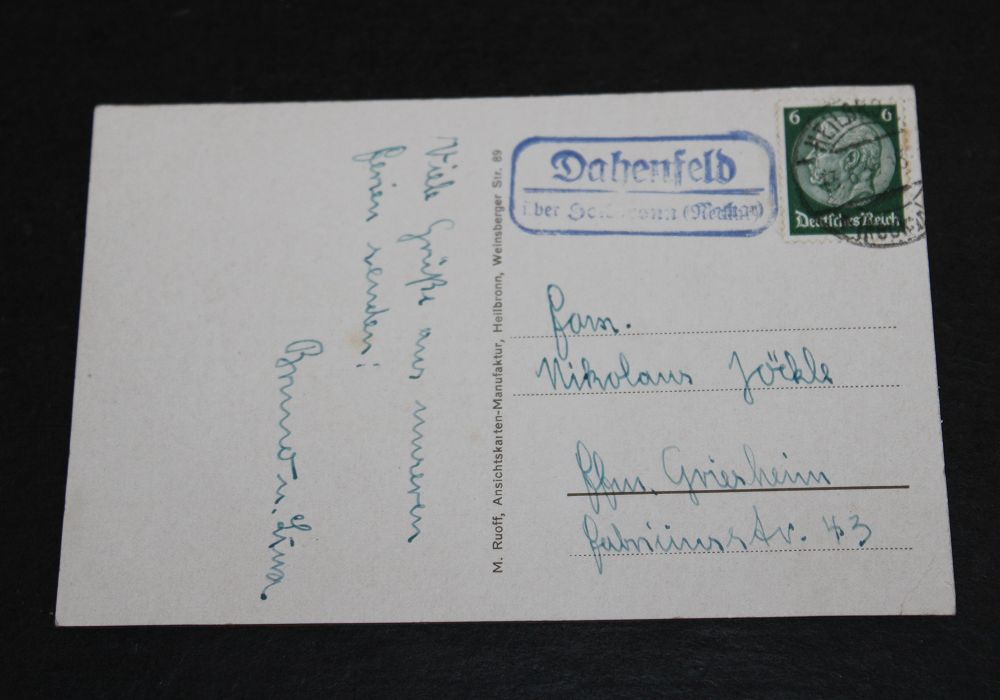 Viele Grüße aus unseren
Ferien senden:
Bruno u. Lina.
M. Ruoff, Ansichtskarten-Manufaktur, Heilbronn, Weinsberger Str. 89
Dahenfeld
über Heilbronn (Neckar)
6 6
Deutsches Reich
Fam.
Nikolaus Jöckle
Ffm. Griesheim
43